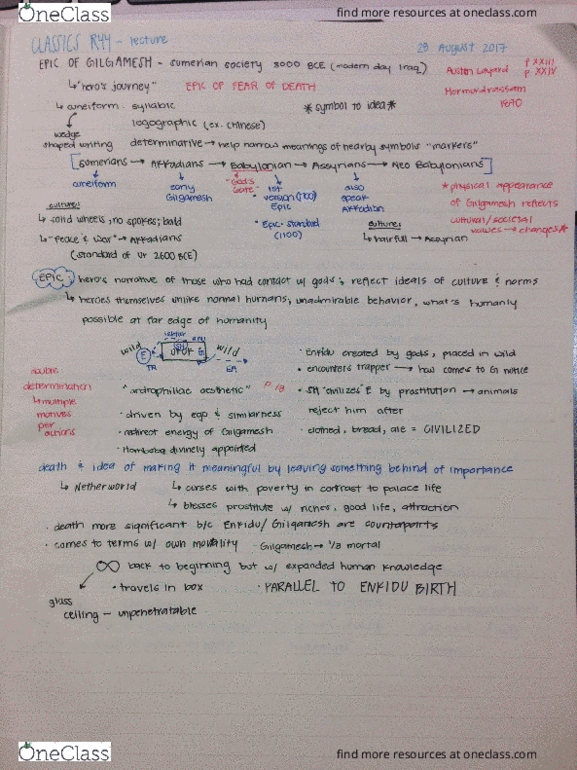 OneClass
find more resources at oneclass.com
CLASSICS R44 - lecture
28 August 2017
EPIC OF GILGAMESH - sumerian society 3000 BCE (modern day Iraq)
Austin Layard
p XXIII
p XXIV
Hormuzd Rassam
1870
↳ "hero's journey"
EPIC OF FEAR OF DEATH
↳ cuneiform: syllabic
*symbol to idea*
wedge
shaped writing
logographic (ex. Chinese)
determinative → help narrow meanings of nearby symbols "markers"
[Sumerians → Akkadians → Babylonian → Assyrians → Neo Babylonians]
cuneiform
early
Gilgamesh
"God's
Gate"
1st
version (1700)
Epic
also
speak
Akkadian
*physical appearance
of Gilgamesh reflects
cultural/societal
values → changes*
• Epic-standard
(1100)
culture:
↳ solid wheels, no spokes; bald
↳ "Peace & War" → Akkadians
(standard of Ur 2600 BCE)
culture:
↳ hairfull → Assyrian
EPIC: hero's narrative of those who had contact w/ gods; reflect ideals of culture & norms
↳ heroes themselves unlike normal humans; unadmirable behavior, what's humanly
possible at far edge of humanity
wild
E
TR
SH
URUK
G
wild
• Enkidu created by gods, placed in wild
• encounters trapper → how comes to G notice
• SH "civilizes" E by prostitution → animals
reject him after
• clothed, bread, ale = CIVILIZED
double
determination
↳ multiple
motives
per
actions
"androphiliac aesthetic"
• driven by ego & similarness
• redirect energy of Gilgamesh
• Humbaba divinely appointed
death & idea of making it meaningful by leaving something behind of importance
↳ Netherworld
↳ curses with poverty in contrast to palace life
↳ blesses prostitute w/ riches, good life, attraction
• death more significant b/c Enkidu/Gilgamesh are counterparts
• comes to terms w/ own mortality
- Gilgamesh → 1/3 mortal
∞ back to beginning but w/ expanded human knowledge
• travels in box
• PARALLEL TO ENKIDU BIRTH
glass
ceiling - unpenetratable
OneClass
find more resources at oneclass.com